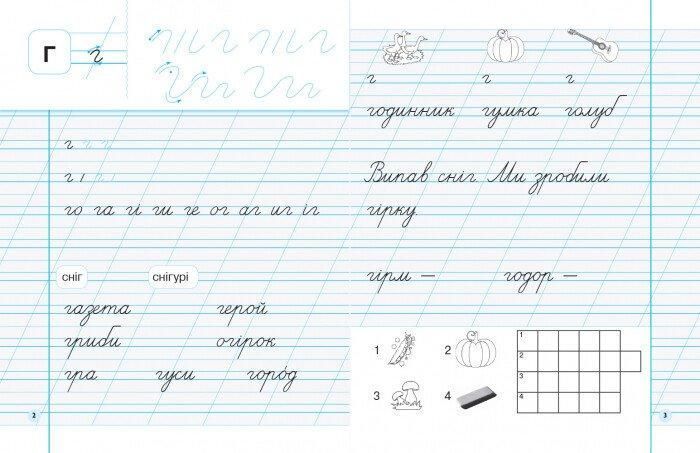 Г г
г г г
го га гі ги ге ог аг иг іг
сніг снігурі
газета герой
гриби огірок
гра гуси горо́д
2
г г г
годинник гумка голуб
Випав сніг Ми зробили
гірку
гірм — годор —
1 2
3 4
1
2
3
4
3